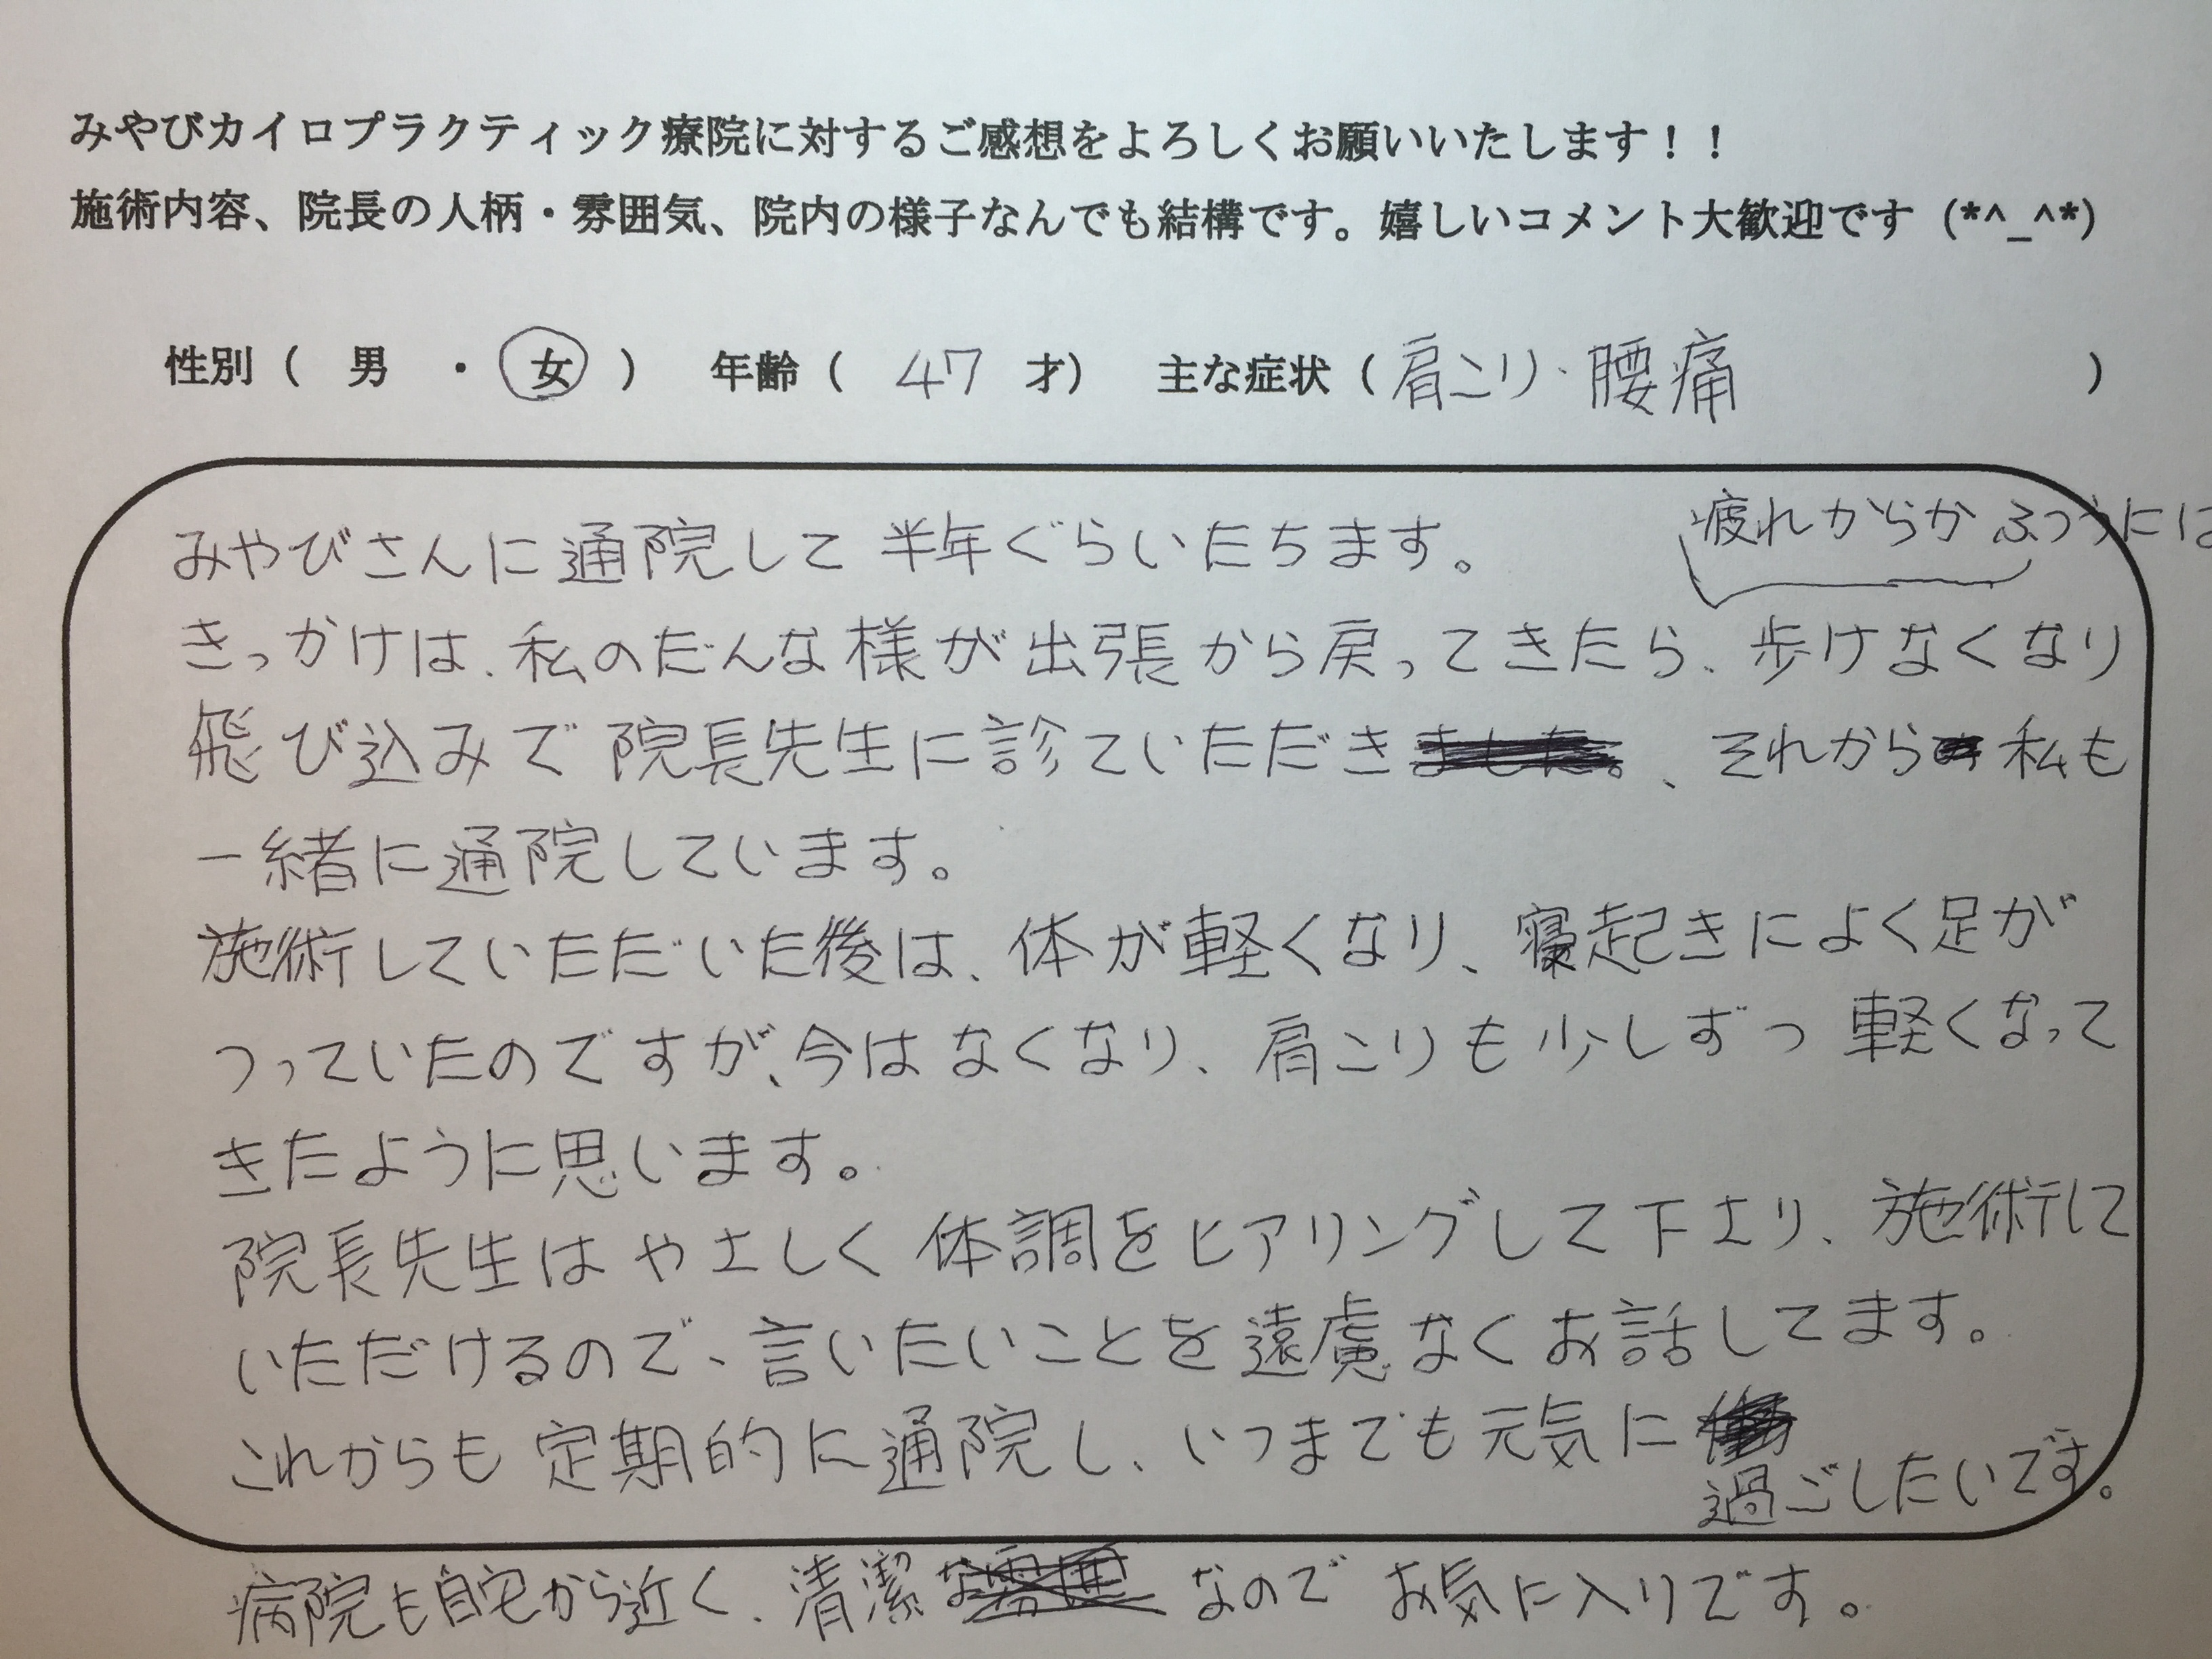 みやびカイロプラクティック療院に対するご感想をよろしくお願いいたします！！
施術内容、院長の人柄・雰囲気、院内の様子なんでも結構です。嬉しいコメント大歓迎です（*^_^*）
性別（　男　・　女　）　年齢（　47　才）　主な症状（肩こり・腰痛　）
みやびさんに通院して半年ぐらいたちます。
疲れからかふつうには
きっかけは、私のだんな様が出張から戻ってきたら、歩けなくなり
飛び込みで院長先生に診ていただき、それから私も
一緒に通院しています。
施術していただいた後は、体が軽くなり、寝起きによく足が
つっていたのですが、今はなくなり、肩こりも少しずつ軽くなって
きたように思います。
院長先生はやさしく体調をヒアリングして下さり、施術して
いただけるので、言いたいことを遠慮なくお話してます。
これからも定期的に通院し、いつまでも元気に
過ごしたいです。
病院も自宅から近く、清潔なのでお気に入りです。